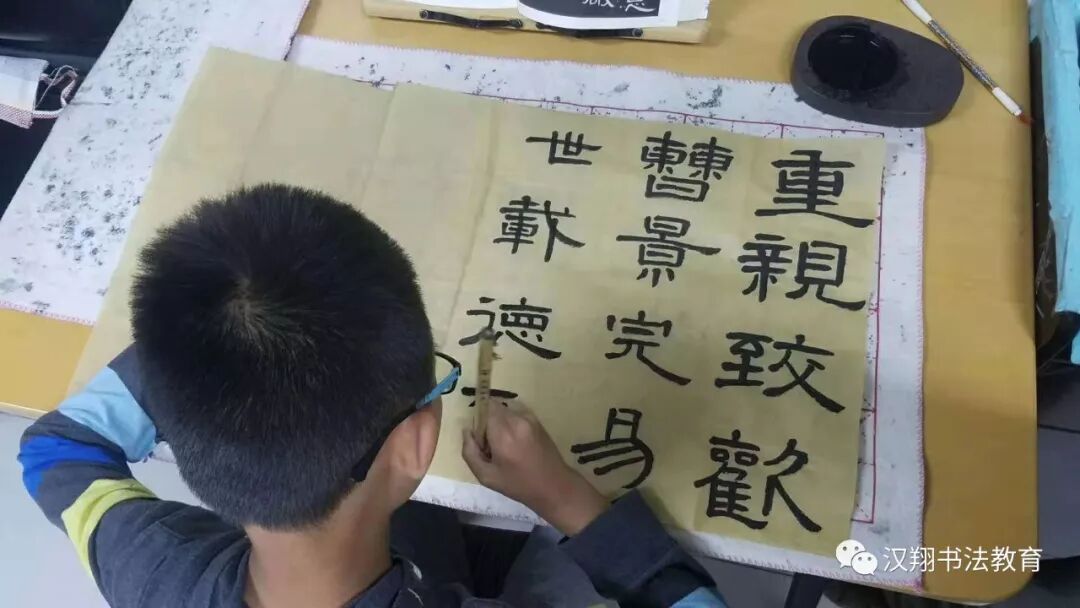 重親致歡
曹景完易
世載德
汉翔书法教育